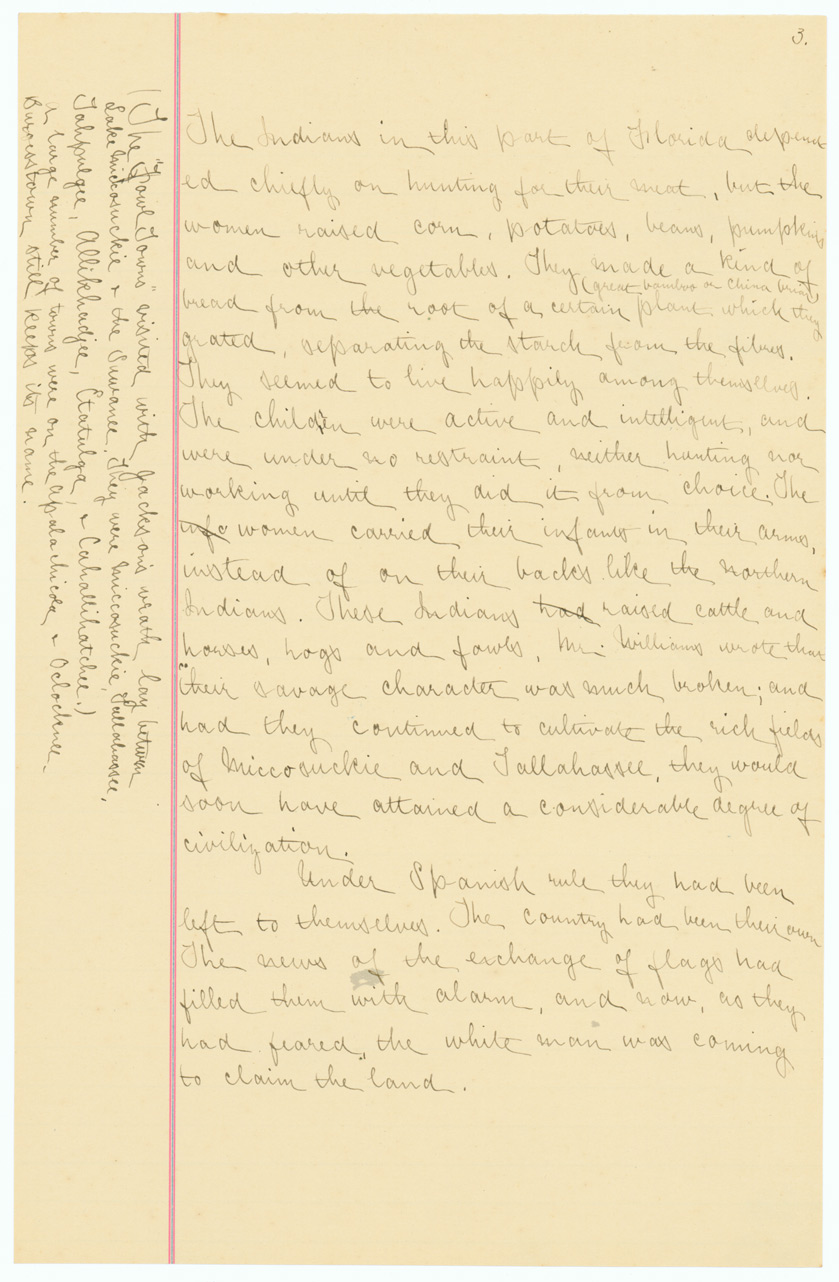 3.
The Indians in this part of Florida depend-
ed chiefly on hunting for their meat, but the
women raised corn, potatoes, beans, pumpkins
and other vegetables. They made a kind of
(great bamboo or China briar)
bread from the root of a certain plant which they
grated, separating the starch from the fibres.
They seemed to live happily among themselves.
The children were active and intelligent, and
were under no restraint, neither hunting nor
working until they did it from choice. The
info women carried their infants in their arms,
instead of on their backs like the northern
Indians. These Indians had raised cattle and
horses, hogs and fowls, Mr. Williams wrote that
"their savage character was much broken; and
had they continued to cultivate the rich fields
of Miccosuckie and Tallahassee, they would
soon have attained a considerable degree of
civilization.
Under Spanish rule they had been
left to themselves. The country had been their own
The news of the exchange of flags had
filled them with alarm, and now, as they
had feared, "the white man was coming
to claim the "land.
(The "Fowl Towns" visited with Jackson's wrath lay between
Lake Miccosuckie & the Suwanee. They were Miccosuckie, Tallahassee,
Tahpulgee, Allikhadjee, Etatulga, & Cahallihatchee.)
A large number of towns were on the Apalachicola & Oclocknee.
Burgesstown still keeps its name.